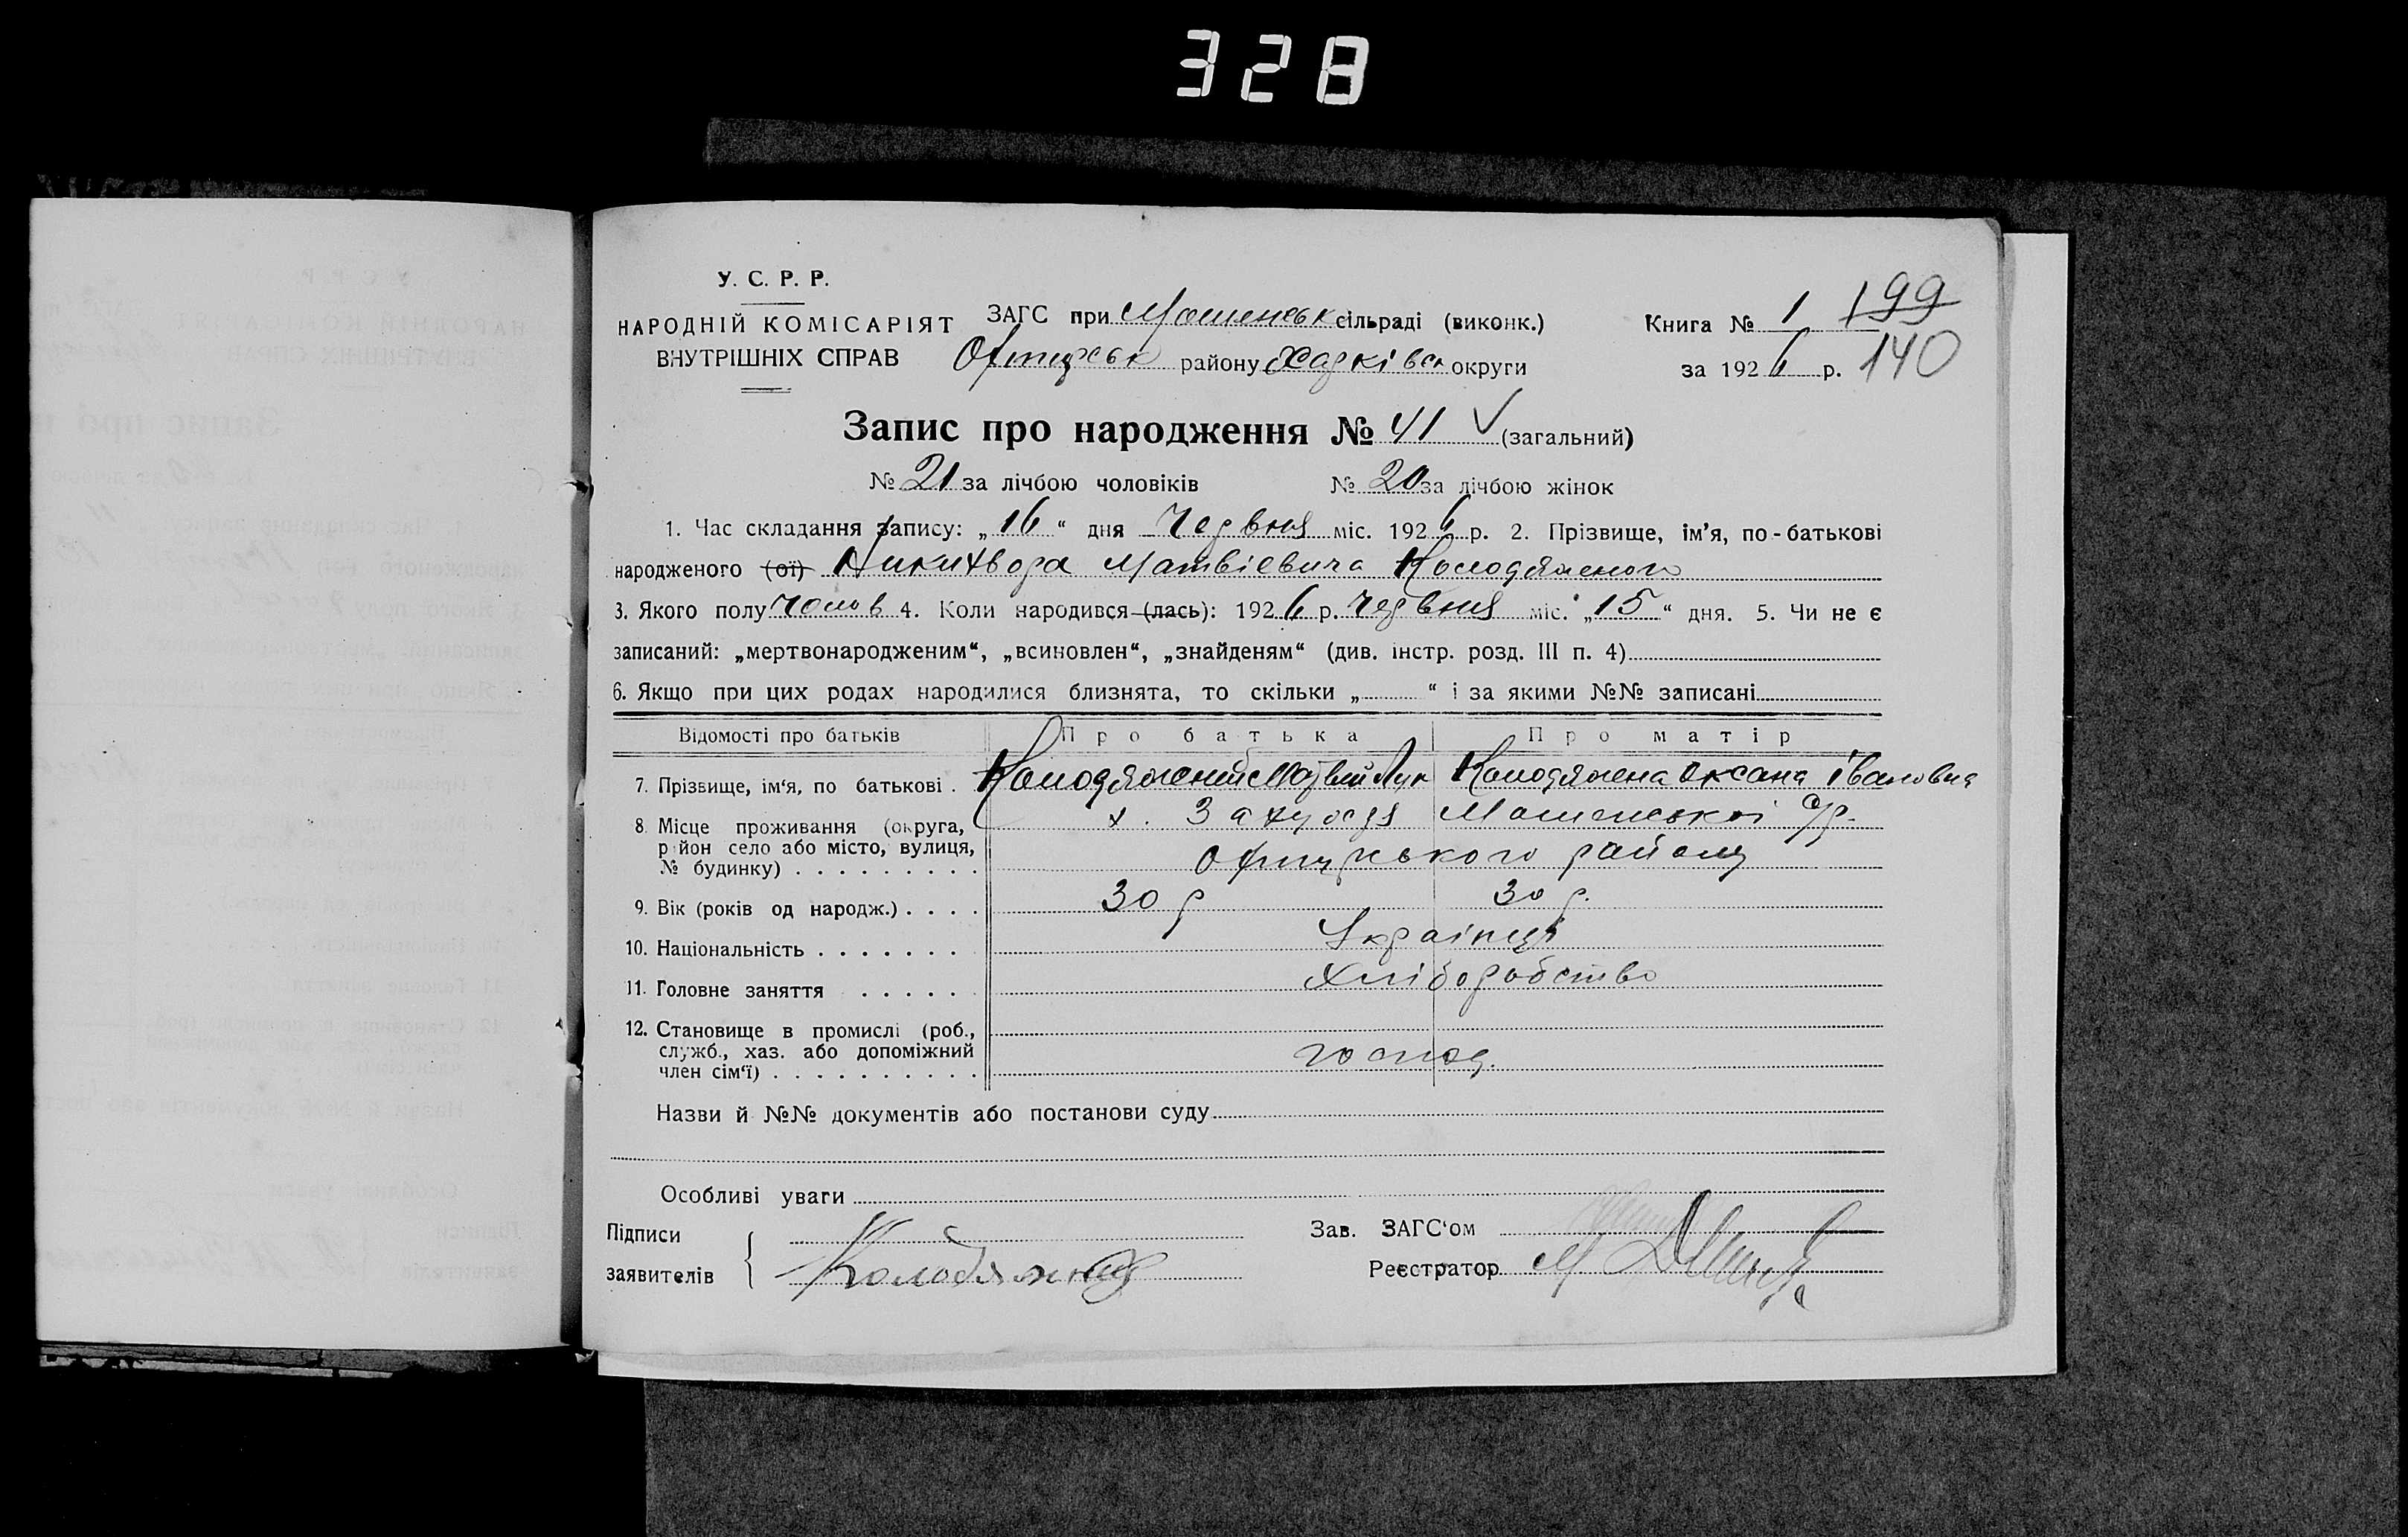 328
У. С. Р. Р.
НАРОДНІЙ КОМІСАРІЯТ
ВНУТРІШНІХ СПРАВ
ЗАГС при Машенськ сільраді (виконк.)
Охтирськ району Харківск округи
Книга № 1 199
за 1926 р. 140
Запис про народження № 41 √ (загальний)
№ 21 за лічбою чоловіків № 20 за лічбою жінок
1. Час складання запису: „16“ дня Червня міс. 1926 р. 2. Прізвище, ім’я, по-батькові
народженого (ої) Матвієвича Колодяженого
3. Якого полу Чолов 4. Коли народився (лась): 1926 р. Червня міс. „15“ дня. 5. Чи не є
записаний: „мертвонародженим“, „всиновлен“, „знайденям“ (див. інстр. розд. III п. 4)
6. Якщо при цих родах народилися близнята, то скільки „ “ і за якими №№ записані
Відомості про батьків Про батька Про матір
7. Прізвище, ім‘я, по батькові . Колодяжений Матвій Лук Колодяжена Оксана Івановна
8. Місце проживання (округа, х. Машенської с/р.
район село або місто, вулиця, Охтирського району
№ будинку) . . . . . . . . .
9. Вік (років од народж.) . . . . 30 р 30 р.
10. Національність . . . . . . . Українці
11. Головне заняття . . . . . Хліборобство
12. Становище в промислі (роб.,
служб., хаз. або допоміжний господ.
член сім‘ї) . . . . . . . . . .
Назви й №№ документів або постанови суду
Особливі уваги
Підписи
заявителів Колодяжний
Зав. ЗАГС‘ом
Реєстратор М